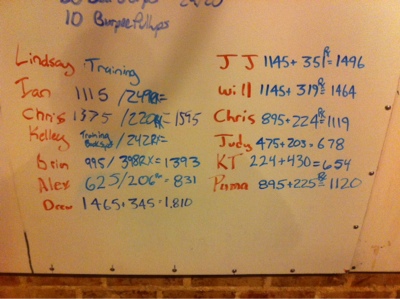 10 Burpee Pullups
Lindsay Training
Ian 1115 /249RX=
Chris 1375 /220RX= 1595
Kelley Training /242RX=
Brin 995/ 398RX=1393
Alex 625/206RX= 831
Drew 1465+345=1,810
JJ 1145+351RX=1496
Will 1145+319RX=1464
Chris 895+224RX=1119
Judy 475+203=678
KT 224+430=654
895+225RX=1120